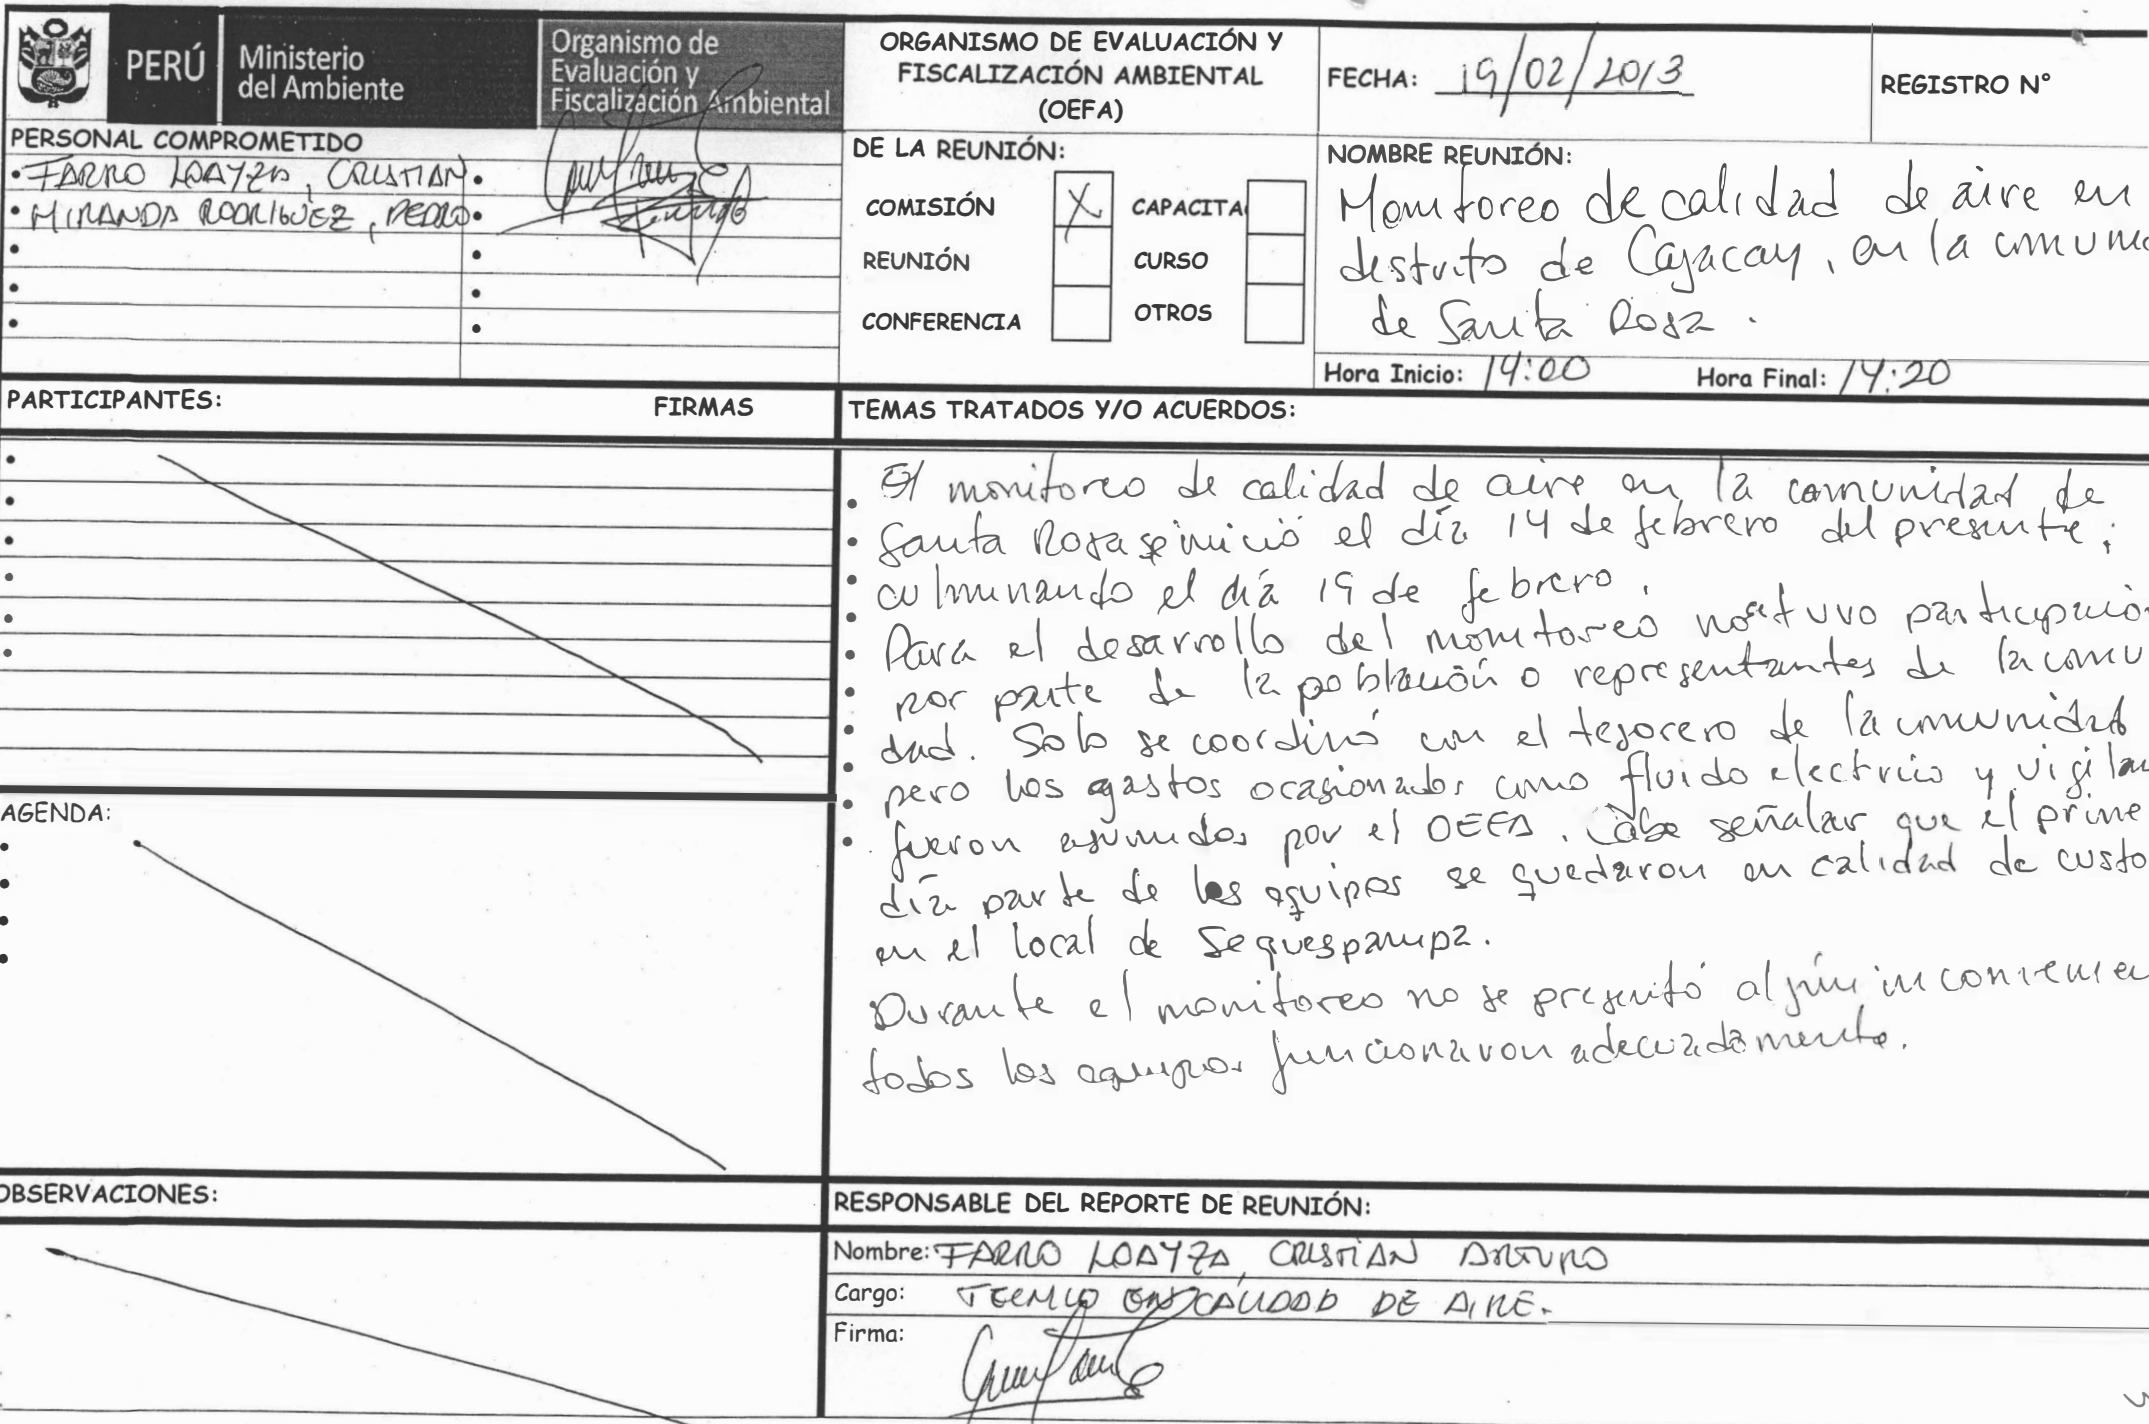 PERÚ
Ministerio
del Ambiente
Organismo de
Evaluación y
Fiscalización Ambiental
ORGANISMO DE EVALUACIÓN Y
FISCALIZACIÓN AMBIENTAL
(OEFA)
FECHA: 19/02/2013
REGISTRO N°
PERSONAL COMPROMETIDO
• FARRO LOAYZA, CRISTIAN •
• MIRANDA RODRIGUEZ, PEDRO •
DE LA REUNIÓN:
COMISIÓN X CAPACITA
REUNIÓN CURSO
CONFERENCIA OTROS
NOMBRE REUNIÓN:
Monitoreo de calidad de aire en
distrito de Cajacay, en la comuni
de Santa Rosa.
Hora Inicio: 14:00 Hora Final: 14:20
PARTICIPANTES: FIRMAS
TEMAS TRATADOS Y/O ACUERDOS:
El monitoreo de calidad de aire en la comunidad de
Santa Rosa se inició el día 14 de febrero del presente;
culminando el día 19 de febrero.
Para el desarrollo del monitoreo no se tuvo participación
por parte de la población o representantes de la comu
dad. Solo se coordinó con el tesorero de la comunidad
pero los gastos ocasionados como fluido electrico y vigilan
fueron asumidos por el OEFA. Cabe señalar que el prime
día parte de los equipos se quedaron en calidad de custo
en el local de Sequespampa.
Durante el monitoreo no se presentó algún inconvenien
todos los equipos funcionaron adecuadamente.
AGENDA:
OBSERVACIONES:
RESPONSABLE DEL REPORTE DE REUNIÓN:
Nombre: FARRO LOAYZA, CRISTIAN ARTURO
Cargo: TECNICO EN CALIDAD DE AIRE.
Firma: